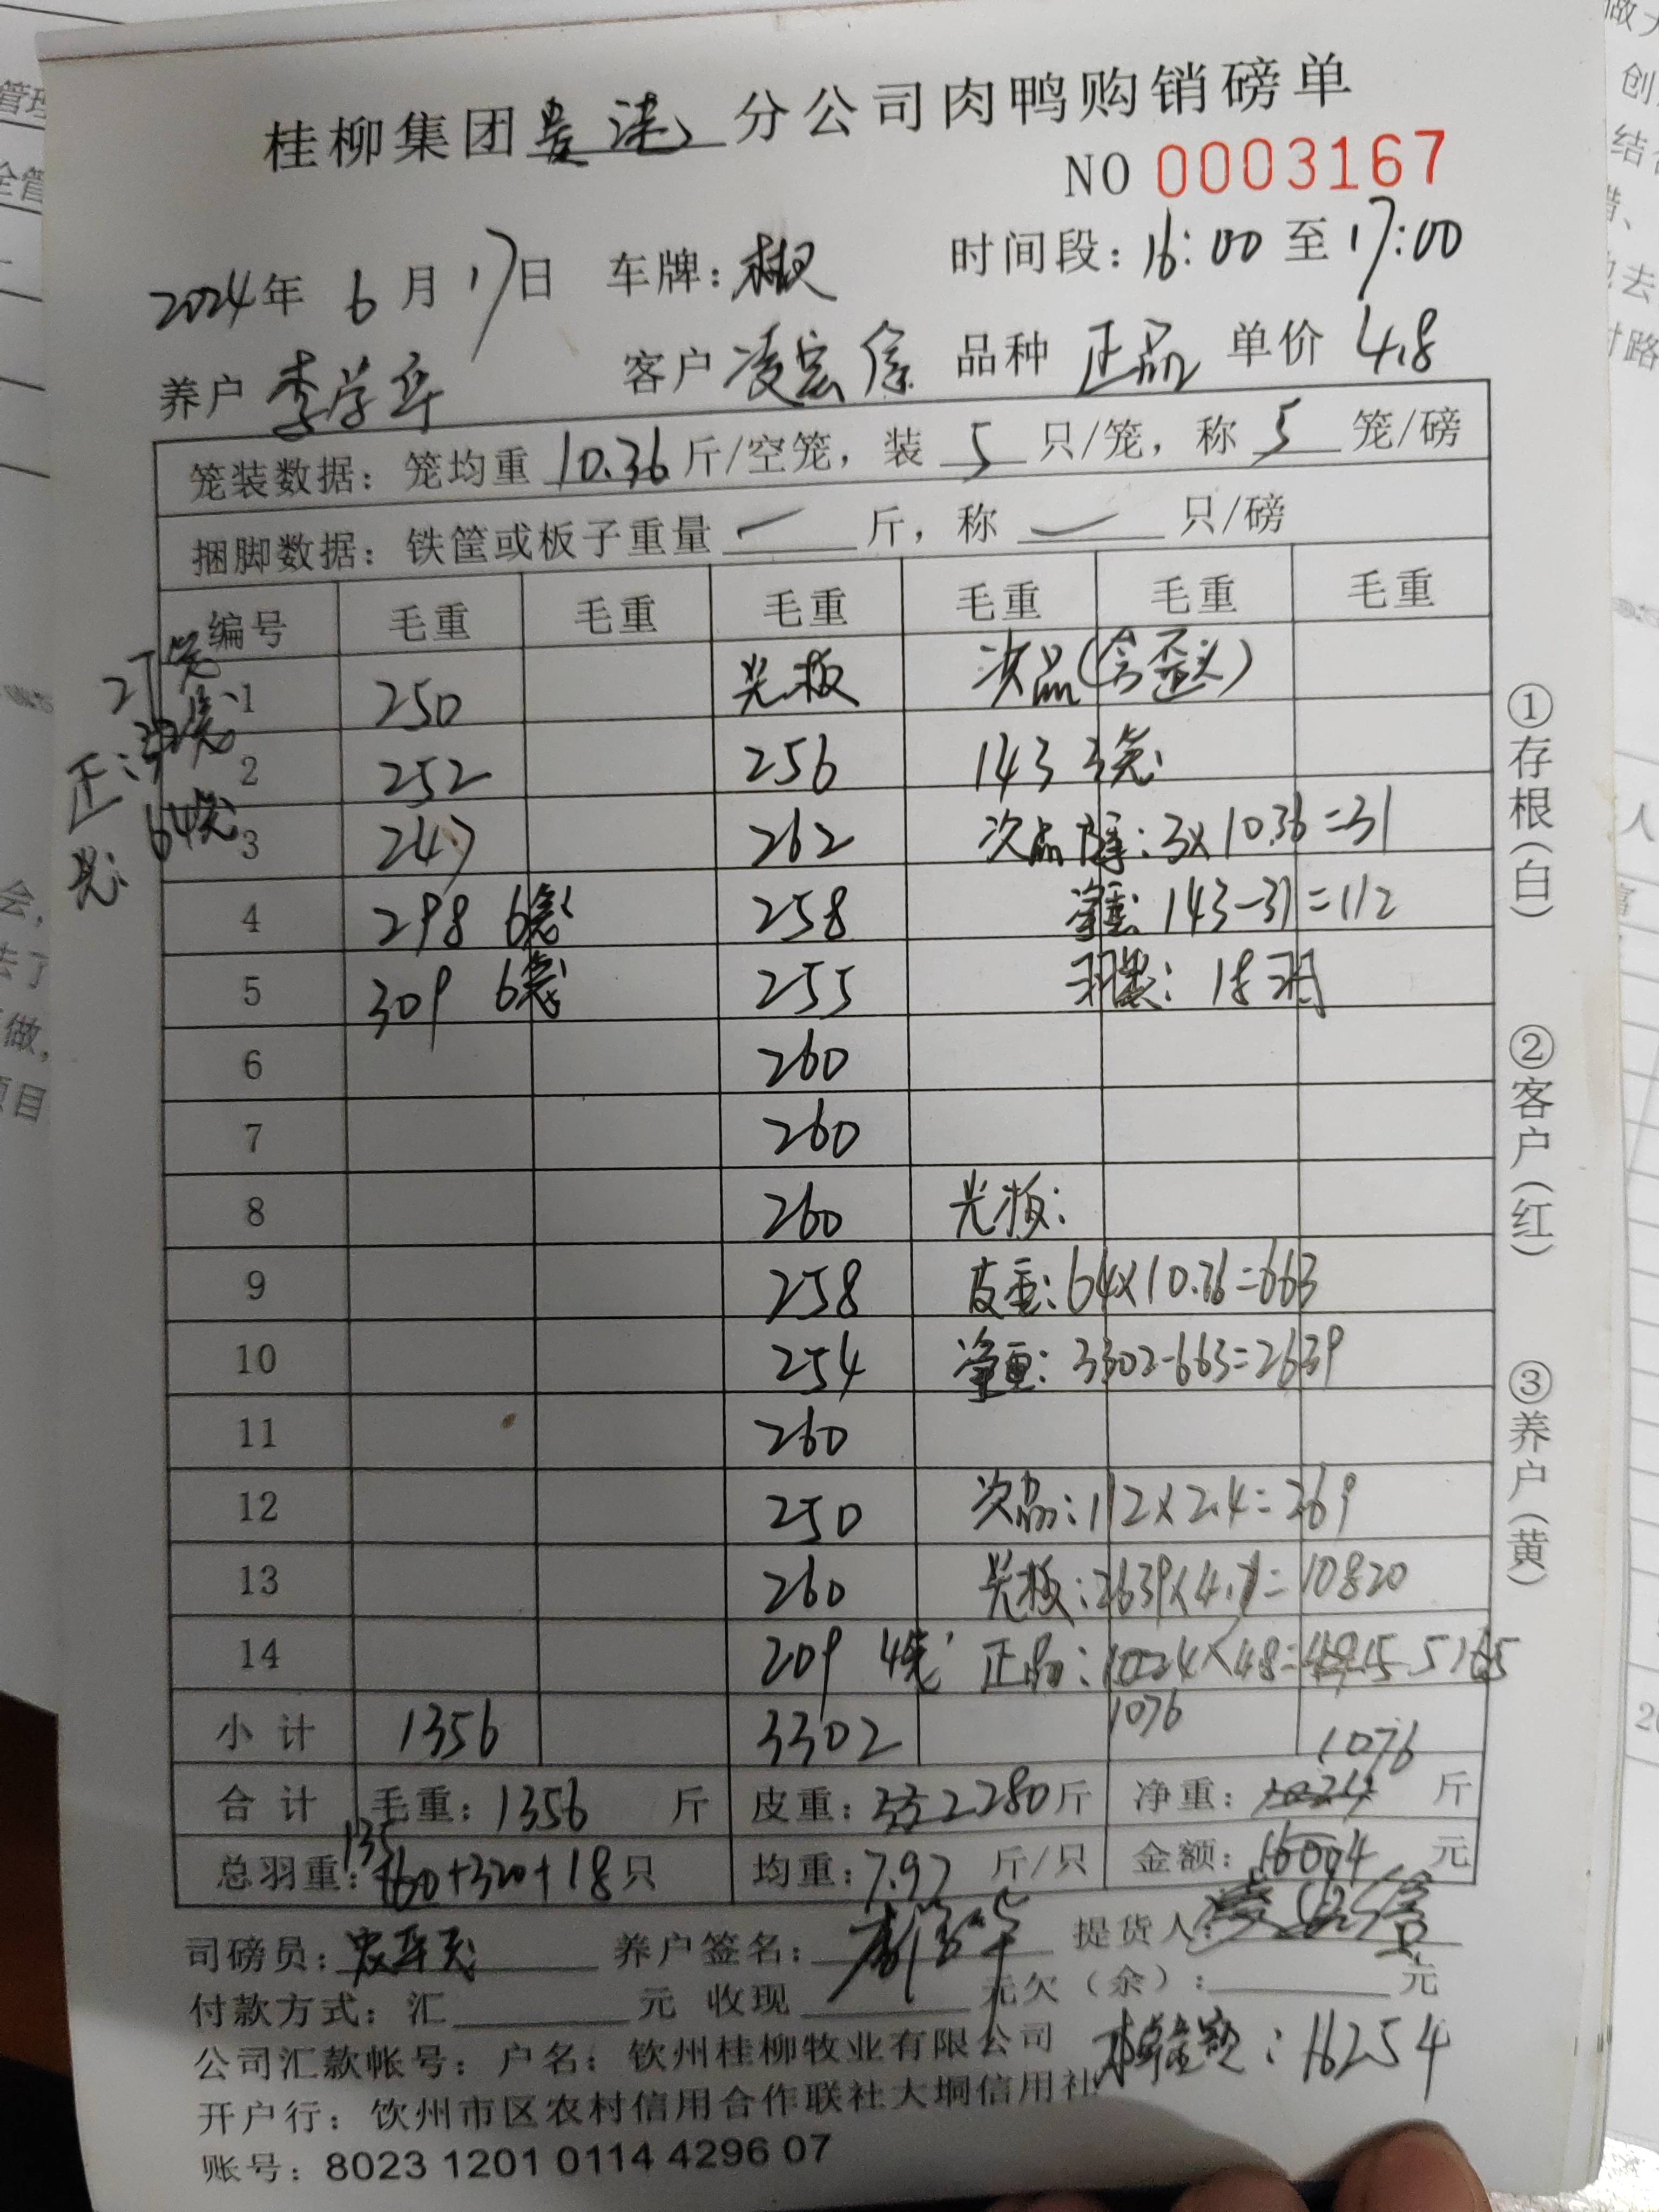 桂柳集团 分公司肉鸭购销磅单
NO 0003167
2024年 6月17日 车牌: 时间段:16:00至17:00
养户 李学华 客户 凌宏 品种 正品 单价 4.8
笼装数据:笼均重 10.36 斤/空笼,装 5 只/笼,称 5 笼/磅
捆脚数据:铁筐或板子重量 — 斤,称 — 只/磅
编号 毛重 毛重 毛重 毛重 毛重 毛重
1 250 光板 次品(含歪头)
2 252 256 143 3笼
3 247 262 次品皮重:3×10.36=31
4 298 6笼 258 净重:143-31=112
5 309 6笼 255 羽数:18羽
6 260
7 260
8 260 光板:
9 258 皮重:64×10.36=663
10 254 净重:3302-663=2639
11 260
12 250 次品:112×2.4=269
13 260 光板:2639×4.1=10820
14 209 4笼 正品: ×4.8= 5165
1076
小计 1356 3302
27笼
正:
光: 64笼
1076
合计 毛重:1356 斤 皮重: 280斤 净重: 斤
135
总羽重: +320+18只 均重:7.97 斤/只 金额: 元
司磅员: 养户签名: 提货人:
付款方式:汇 元 收现 元欠(余): 元
公司汇款帐号:户名:钦州桂柳牧业有限公司
金额:16254
开户行:钦州市区农村信用合作联社大垌信用社
账号:8023 1201 0114 4296 07
①存根(白)
②客户(红)
③养户(黄)